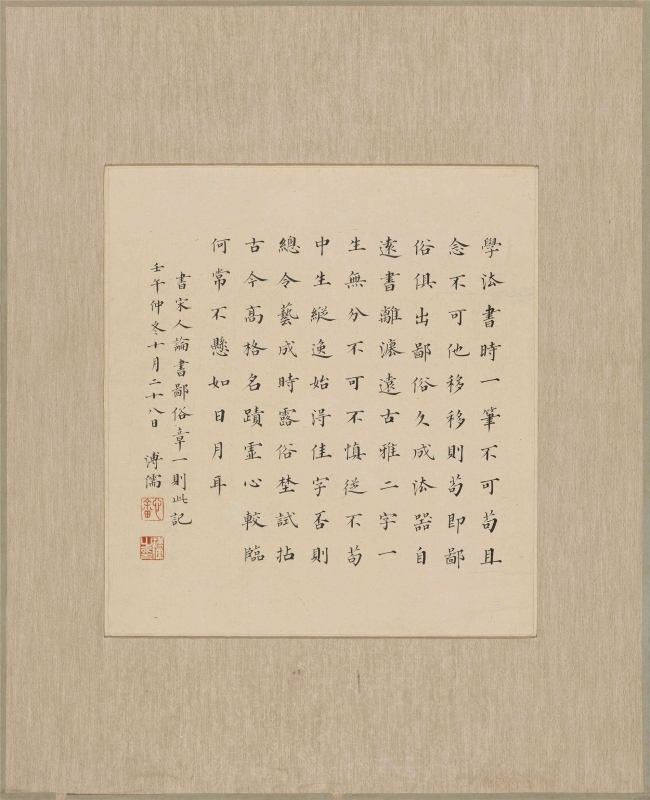 學法書時一筆不可苟且
念不可他移移則苟即鄙
俗俱出鄙俗久成法器自
遠書離灋遠古雅二字一
生無分不可不慎從不苟
中生縱逸始得佳字否則
總令藝成時露俗埜試拈
古今高格名蹟靈心較臨
何常不懸如日月耳
書宋人論書鄙俗章一則此記
壬午仲冬十月二十八日 溥儒